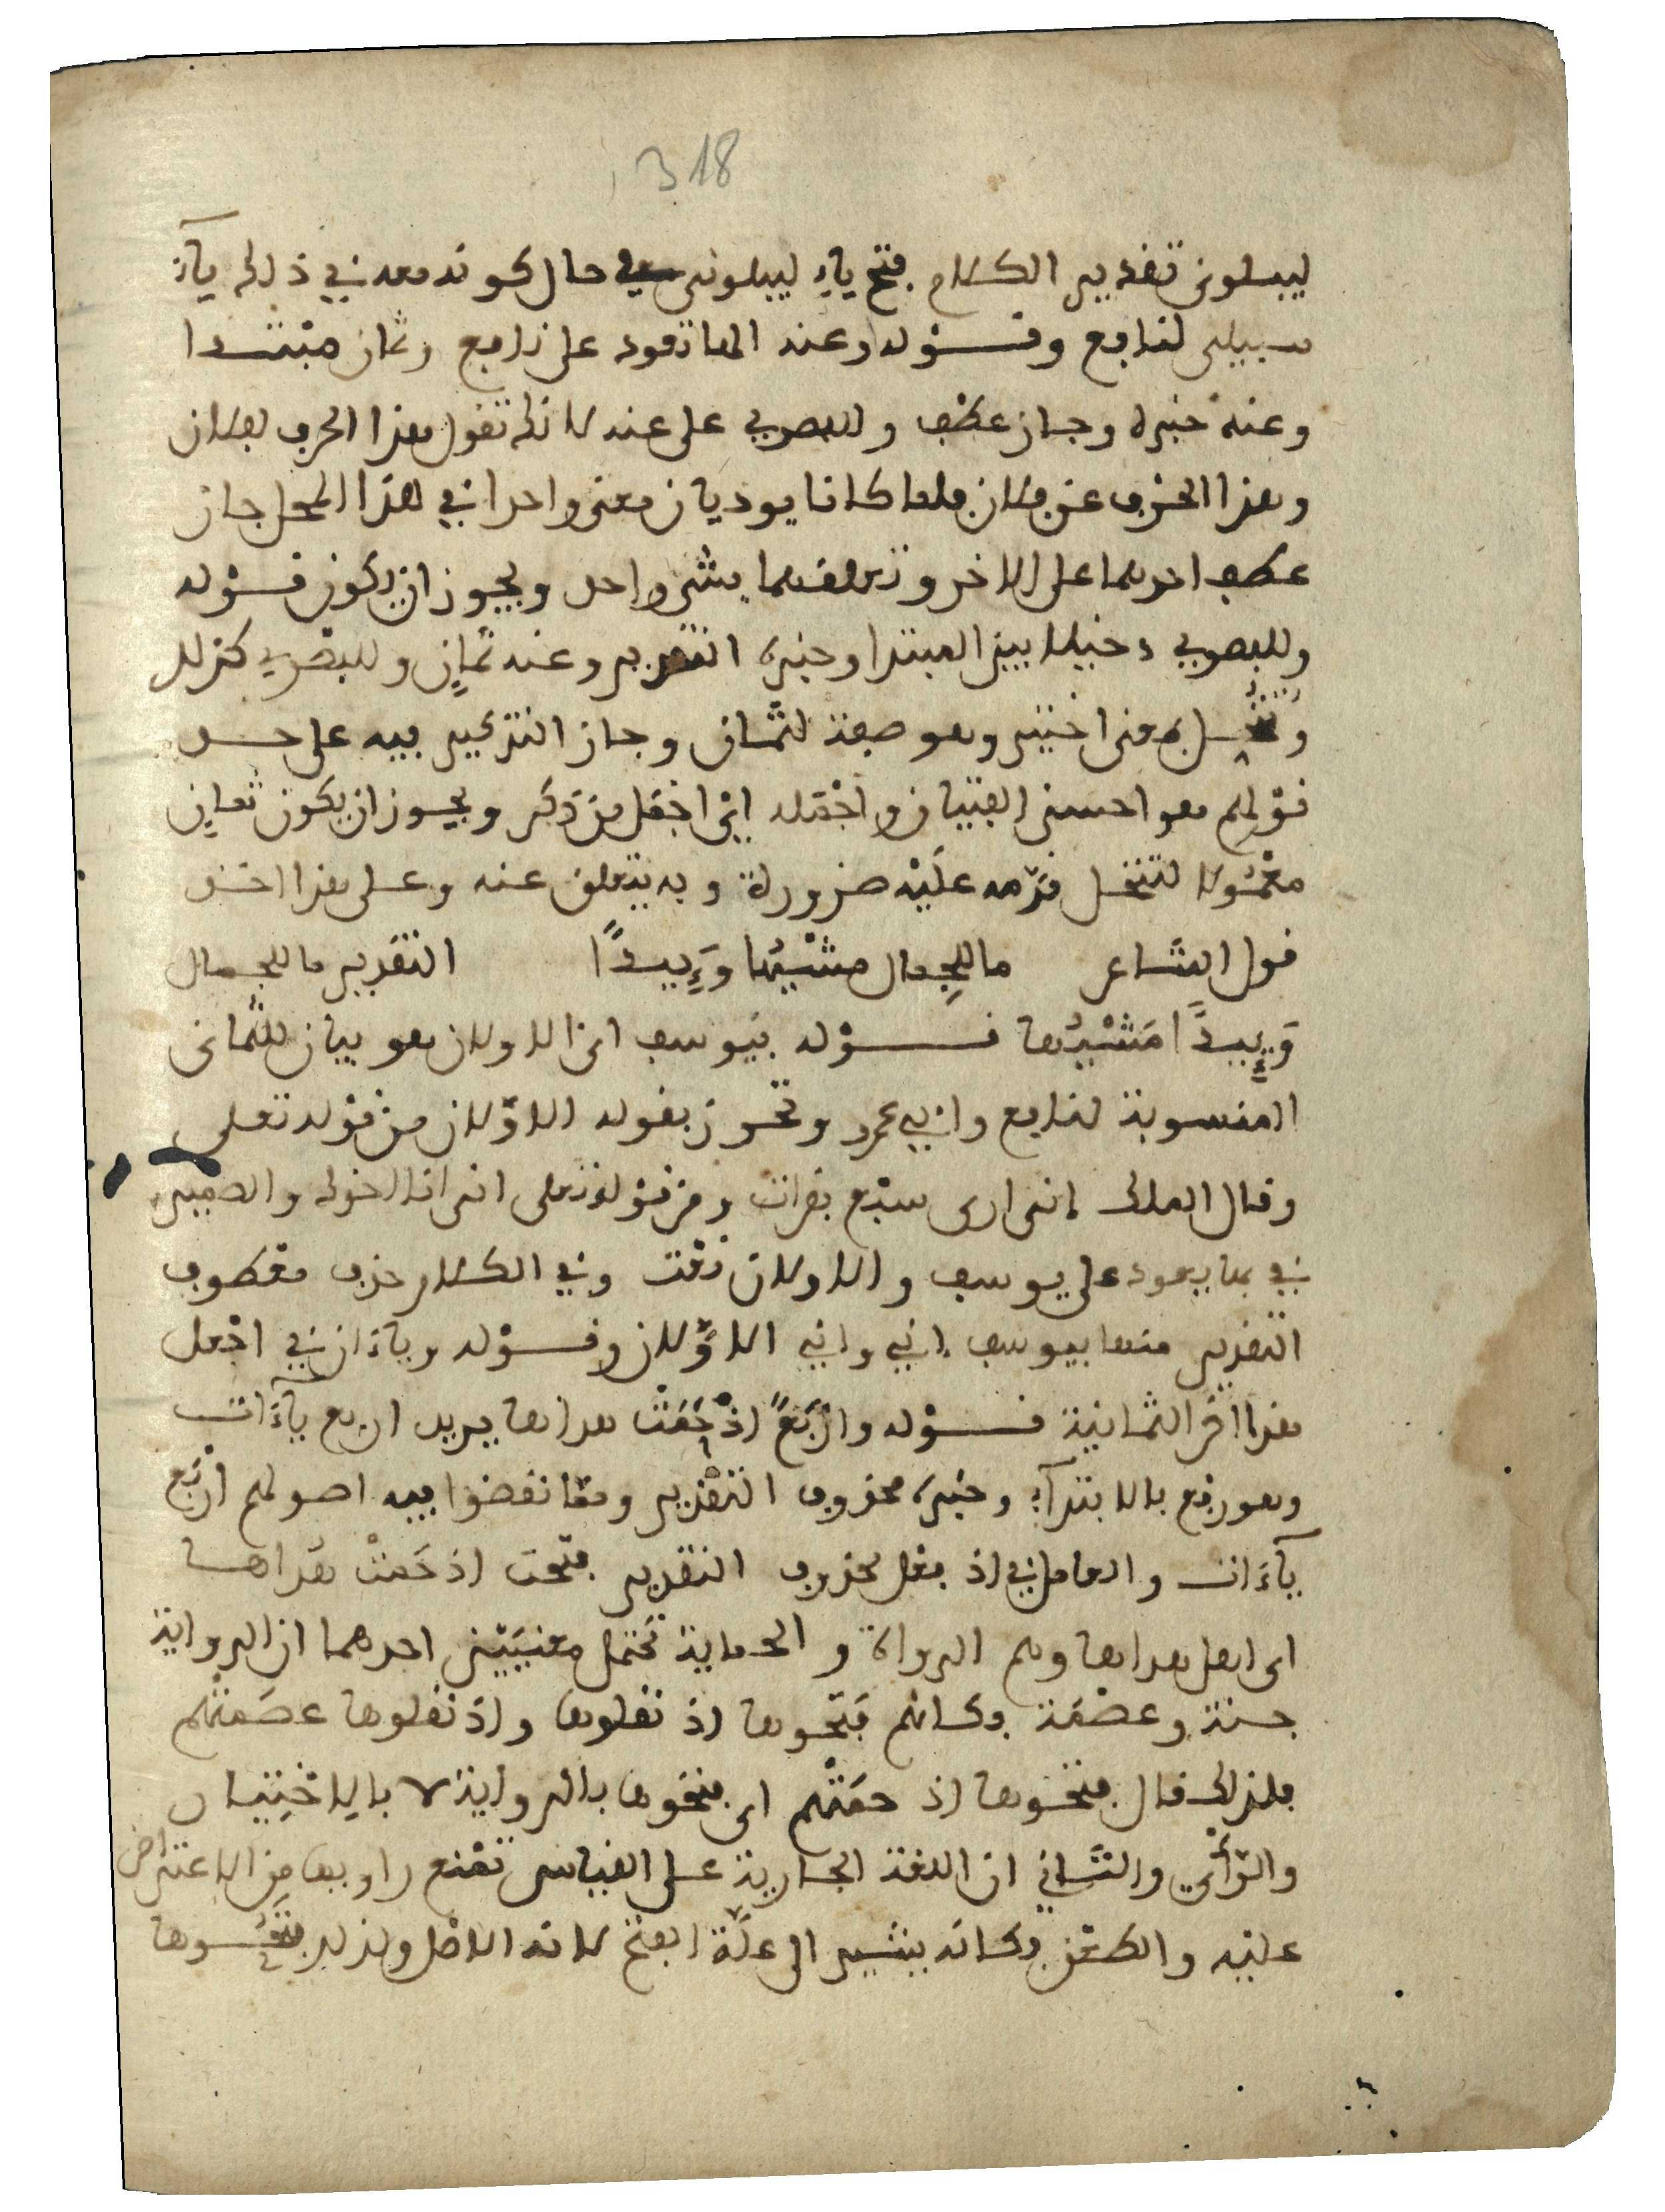 318
ليبلوني تقدير الكلام فتح ياء ليبلوني في حال كونه معه في ذلك ياء
سبيلي لنافع وقوله وعنه الها تعود على نافع وثمان مبتدا
وعنه خبره وجاز عطف وللبصري على عنه لانك تقول هذا الحرف لفلان
وهذا الحرف عن فلان فلما كانا يوديان معنى واحدا في هذا المحل جاز
عطف احدهما على الاخر وتعلقهما بشي واحد ويجوز ان يكون قوله
وللبصري دخيلا بين المبتدا وخبره التقدير وعنه ثمان وللبصري كذلك
وتنخل بمعنى اختير وهو صفة لثمان وجاز التذكير فيه على حد
قولهم هو احسن الفتيان واجمله اي اجمل من ذكر ويجوز ان يكون ثمان
معمولا لتنخل قدمه عليه ضرورة وبه يتعلق عنه وعلى هذا انشد
قول الشاعر ما للجمال مشيها وئيدا التقدير ما للجمال
وئيدا مشيها قوله بيوسف اني الاولان هو بيان للثماني
المنسوبة لنافع وابي عمرو وتحرز بقوله الاولان من قوله تعلى
وقال الملك اني ارى سبع بقرات ومن قوله تعلى اني انا اخوك والضمير
في بها يعود على يوسف والاولان نعت وفي الكلام حذف معطوف
التقدير منها بيوسف اني واني الاولان وقوله وياءان في اجعل
هذا اخر الثمانية قوله واربع اذ حمت هداها يريد اربع ياءات
وهو رفع بالابتداء وخبره محذوف التقدير ومما نقضوا فيه اصولهم اربع
ياءات والعامل في اذ فعل محذوف التقدير فتحت اذ حمت هداها
اي اهل هداها وهم الرواة والحماية تحتمل معنيين احدهما ان الرواية
جنة وعصمة وكانهم فتحوها اذ نقلوها واذ نقلوها عصمتهم
فلذلك قال فتحوها اذ حمتهم اي فتحوها بالرواية لا بالاختيار
والرأي والثاني ان اللغة الجارية على القياس تمنع راويها من الاعتراض
عليه والطعن وكانه يشير الى علة الفتح لانه الاصل ولذلك فتحوها